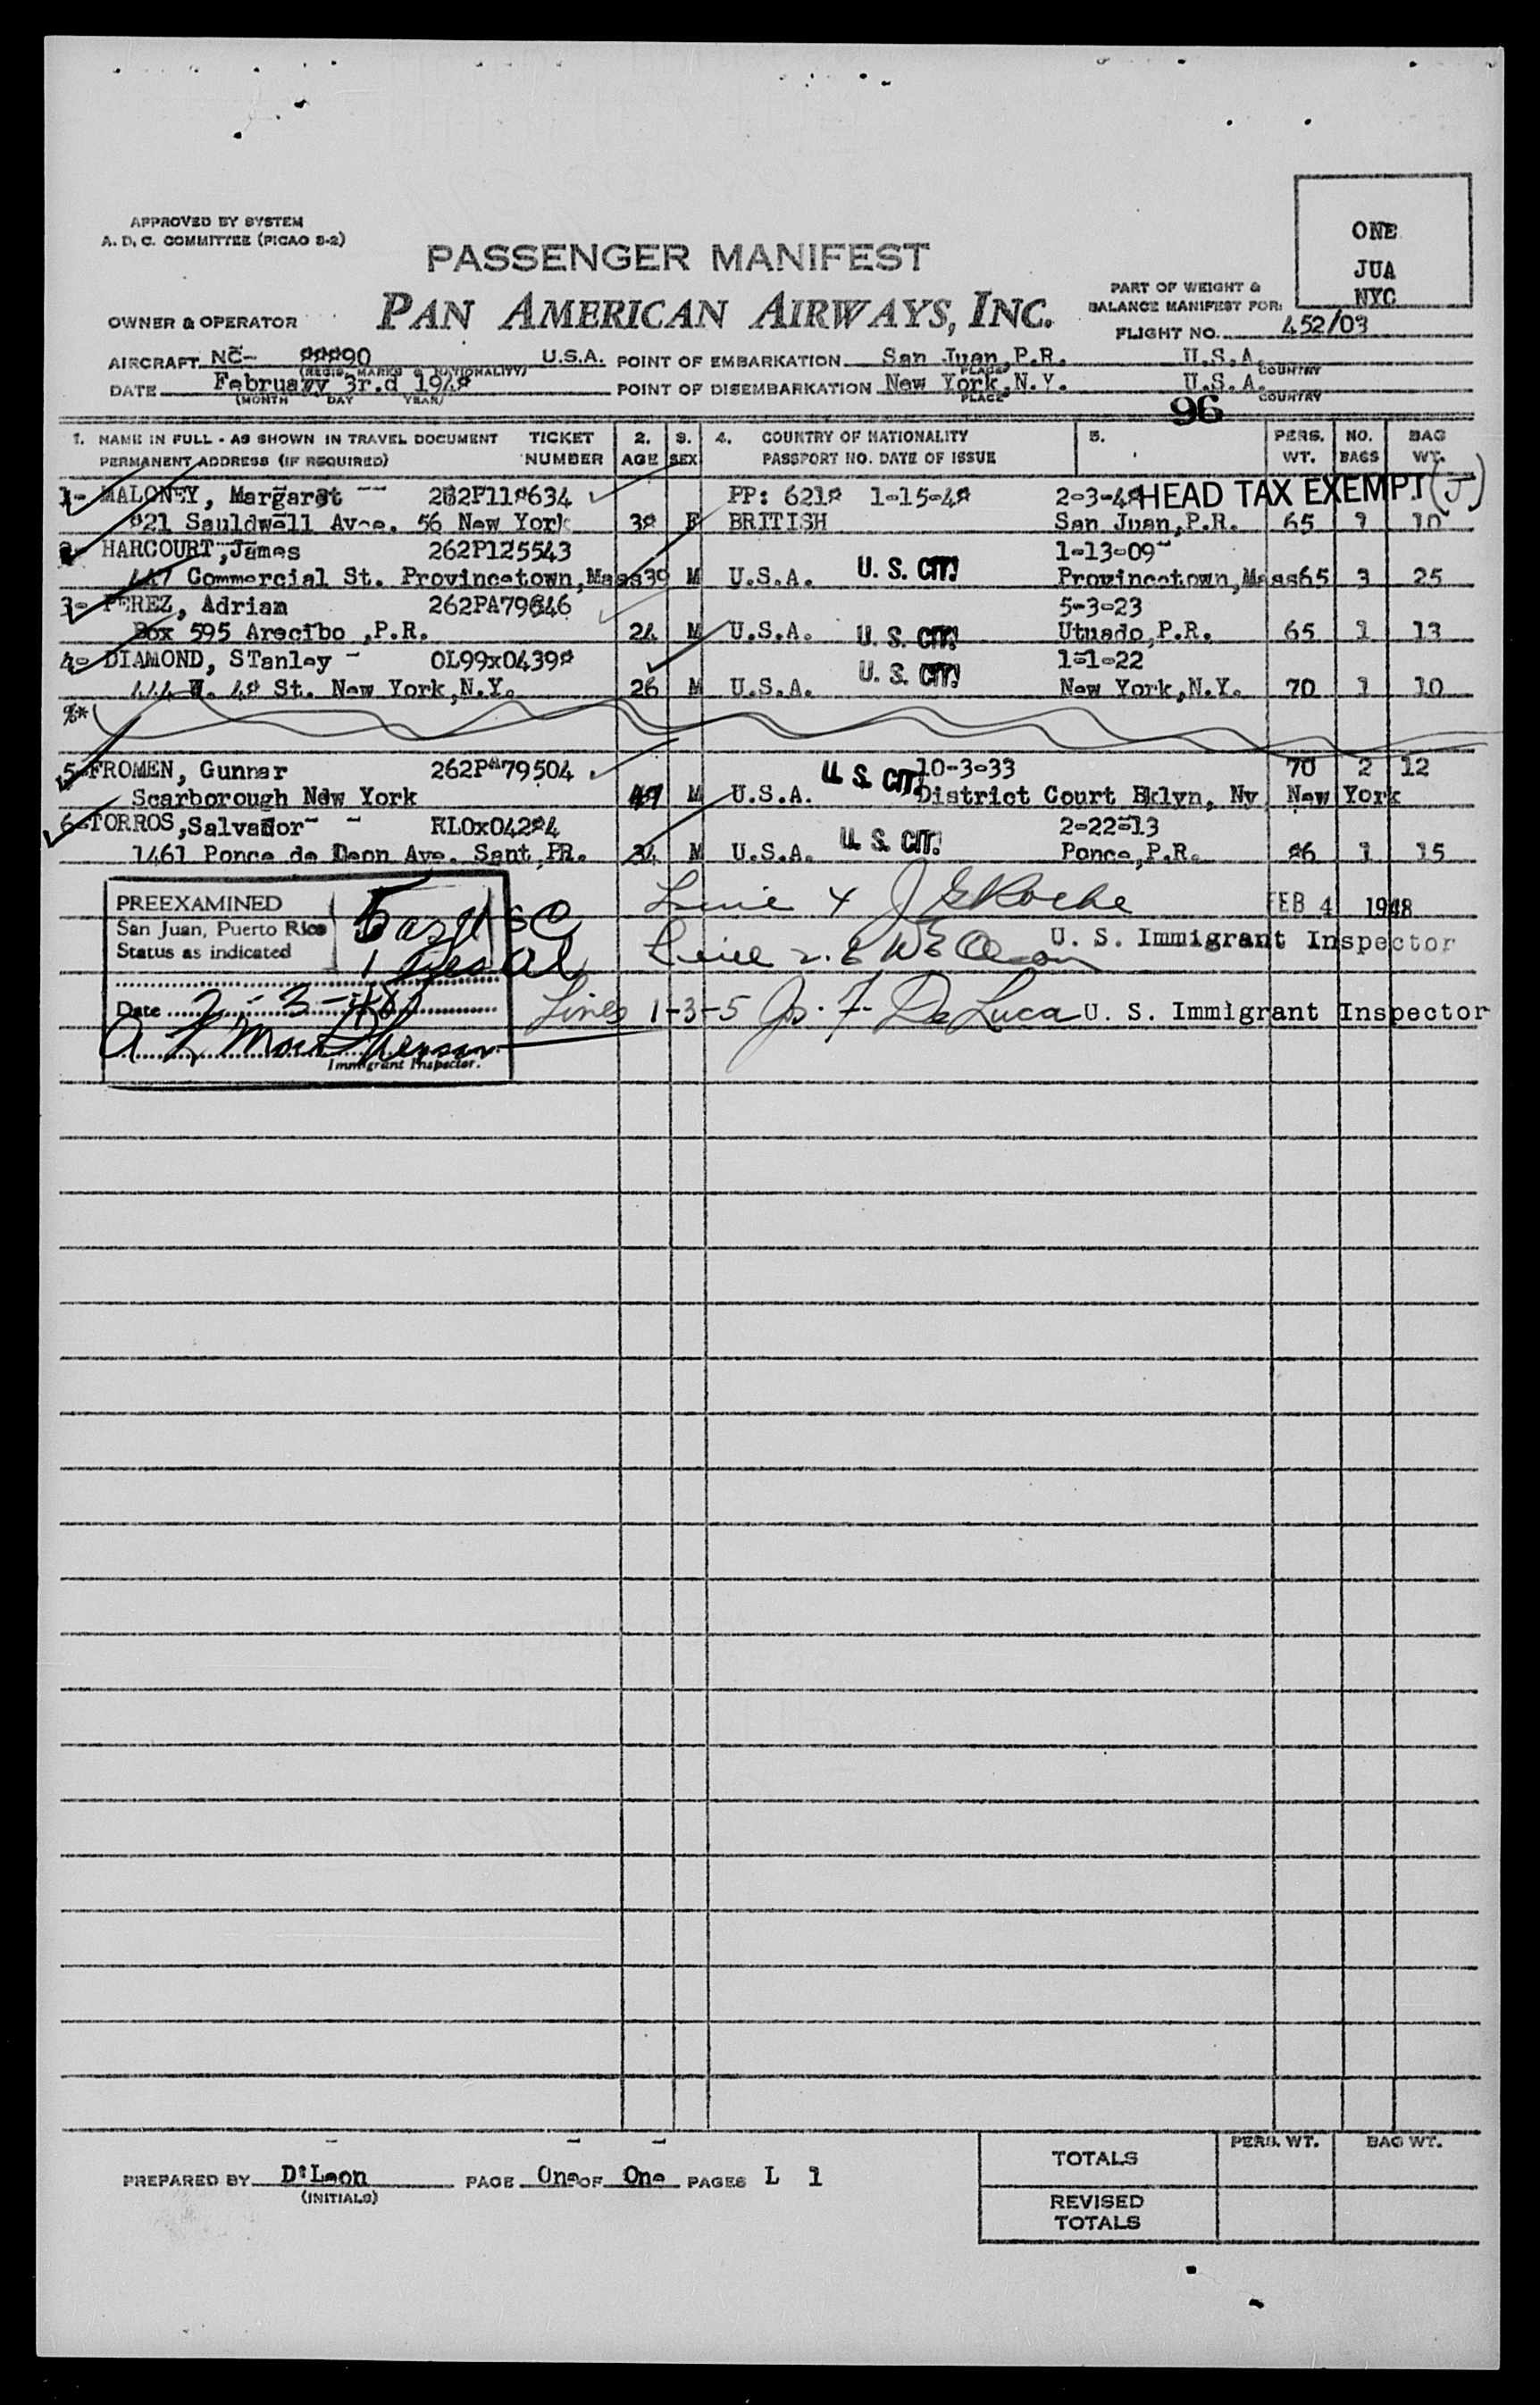 APPROVED BY SYSTEM
A. D. C. COMMITTEE (PICAO S-2)
PASSENGER MANIFEST
PAN AMERICAN AIRWAYS, INC.
ONE
JUA
NYC
PART OF WEIGHT &
BALANCE MANIFEST FOR:
OWNER & OPERATOR
FLIGHT NO. 452/03
AIRCRAFT NC- 88890 U.S.A. POINT OF EMBARKATION San Juan,P.R. U.S.A.
(REGIS. MARKS & NATIONALITY) PLACE COUNTRY
DATE February 3r.d 1948 POINT OF DISEMBARKATION New York,N.Y. U.S.A.
(MONTH DAY YEAR) PLACE COUNTRY
96
1. NAME IN FULL - AS SHOWN IN TRAVEL DOCUMENT TICKET 2. 3. 4. COUNTRY OF NATIONALITY 5. PERS. NO. BAG
PERMANENT ADDRESS (IF REQUIRED) NUMBER AGE SEX PASSPORT NO. DATE OF ISSUE WT. BAGS WT.
1- MALONEY, Margaret 262P118634 PP: 6218 1-15-48 2-3-48 HEAD TAX EXEMPT (J)
821 Sauldwell Ave. 56 New York 38 F BRITISH San Juan,P.R. 65 1 10
2- HARCOURT,James 262P125543 1-13-09
447 Commercial St. Provincetown,Mass 39 M U.S.A. U. S. CIT. Provincetown,Mass 65 3 25
3- PEREZ, Adrian 262PA79646 5-3-23
Box 595 Arecibo ,P.R. 24 M U.S.A. U. S. CIT. Utuado,P.R. 65 1 13
4- DIAMOND, STanley - OL99x04398 U. S. CIT. 1-1-22
444 W. 48 St. New York,N.Y. 26 M U.S.A. New York,N.Y. 70 1 10
%*
5-FROMEN, Gunnar 262PA79504 U. S. CIT. 10-3-33 70 2 12
Scarborough New York 49 M U.S.A. District Court Bklyn, Ny New York
6-TORROS,Salvador - RLOx04284 2-22-13
1461 Ponce de Deon Ave. Sant,PR. 34 M U.S.A. U. S. CIT. Ponce,P.R. 86 1 15
PREEXAMINED
San Juan, Puerto Rico
Status as indicated
5 as USC
1 Res al
Date 2-3-48
Immigrant Inspector.
Line 4 J G Roche FEB 4 1948
U. S. Immigrant Inspector
Line 2. 6
Lines 1-3-5 Jos. F. De Luca U. S. Immigrant Inspector
TOTALS PERS. WT. BAG WT.
PREPARED BY D'Leon PAGE One OF One PAGES L 1
(INITIALS)
REVISED
TOTALS